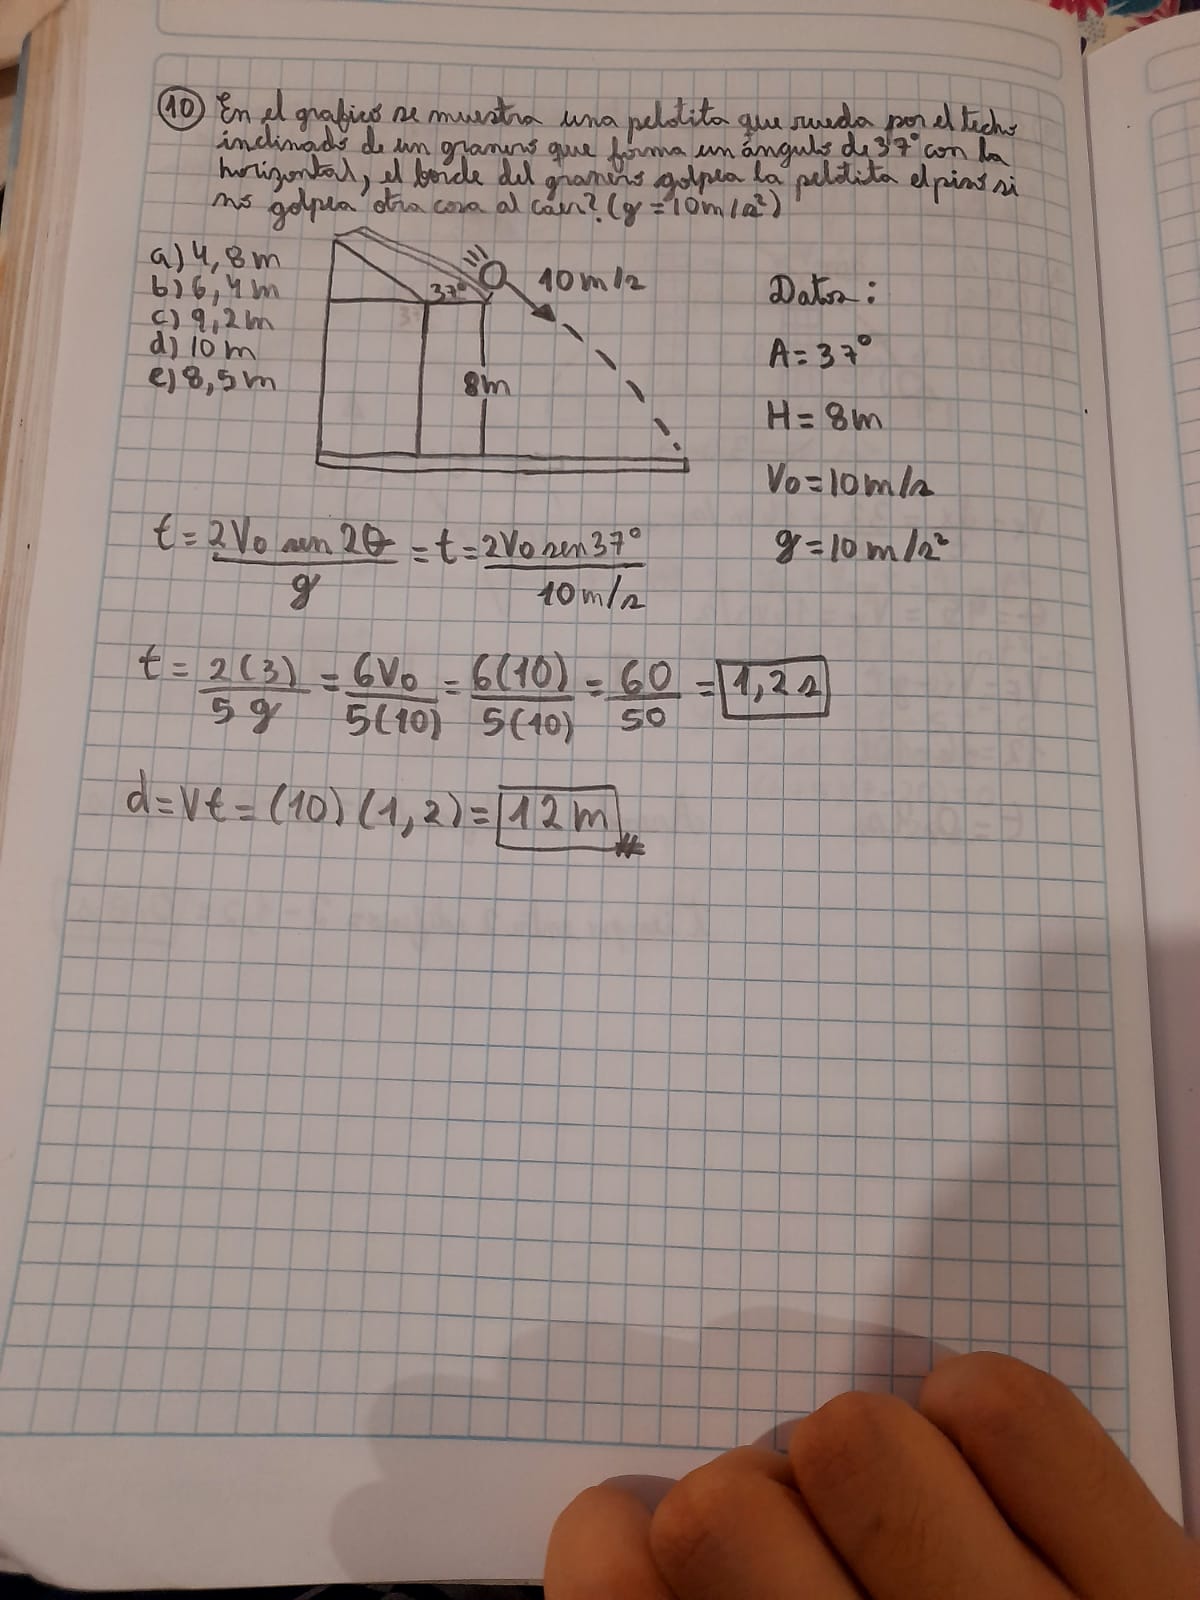 10 En el grafico se muestra una pelotita que rueda por el techo
inclinado de un granero que forma un ángulo de 37° con la
horizontal, el borde del granero golpea la pelotita el piso si
no golpea otra cosa al caer? (g = 10m/s²)
a) 4,8m
b) 6,4m
c) 9,2m
d) 10m
e) 8,5m
37°
10m/s
8m
Datos:
A = 37°
H = 8m
Vo = 10m/s
g = 10m/s²
t = 2Vo sen 2θ / g = t = 2Vo sen37° / 10m/s
t = 2(3) / 5 g = 6Vo / 5(10) = 6(10) / 5(10) = 60 / 50 = 1,2s
d = Vt = (10) (1,2) = 12m